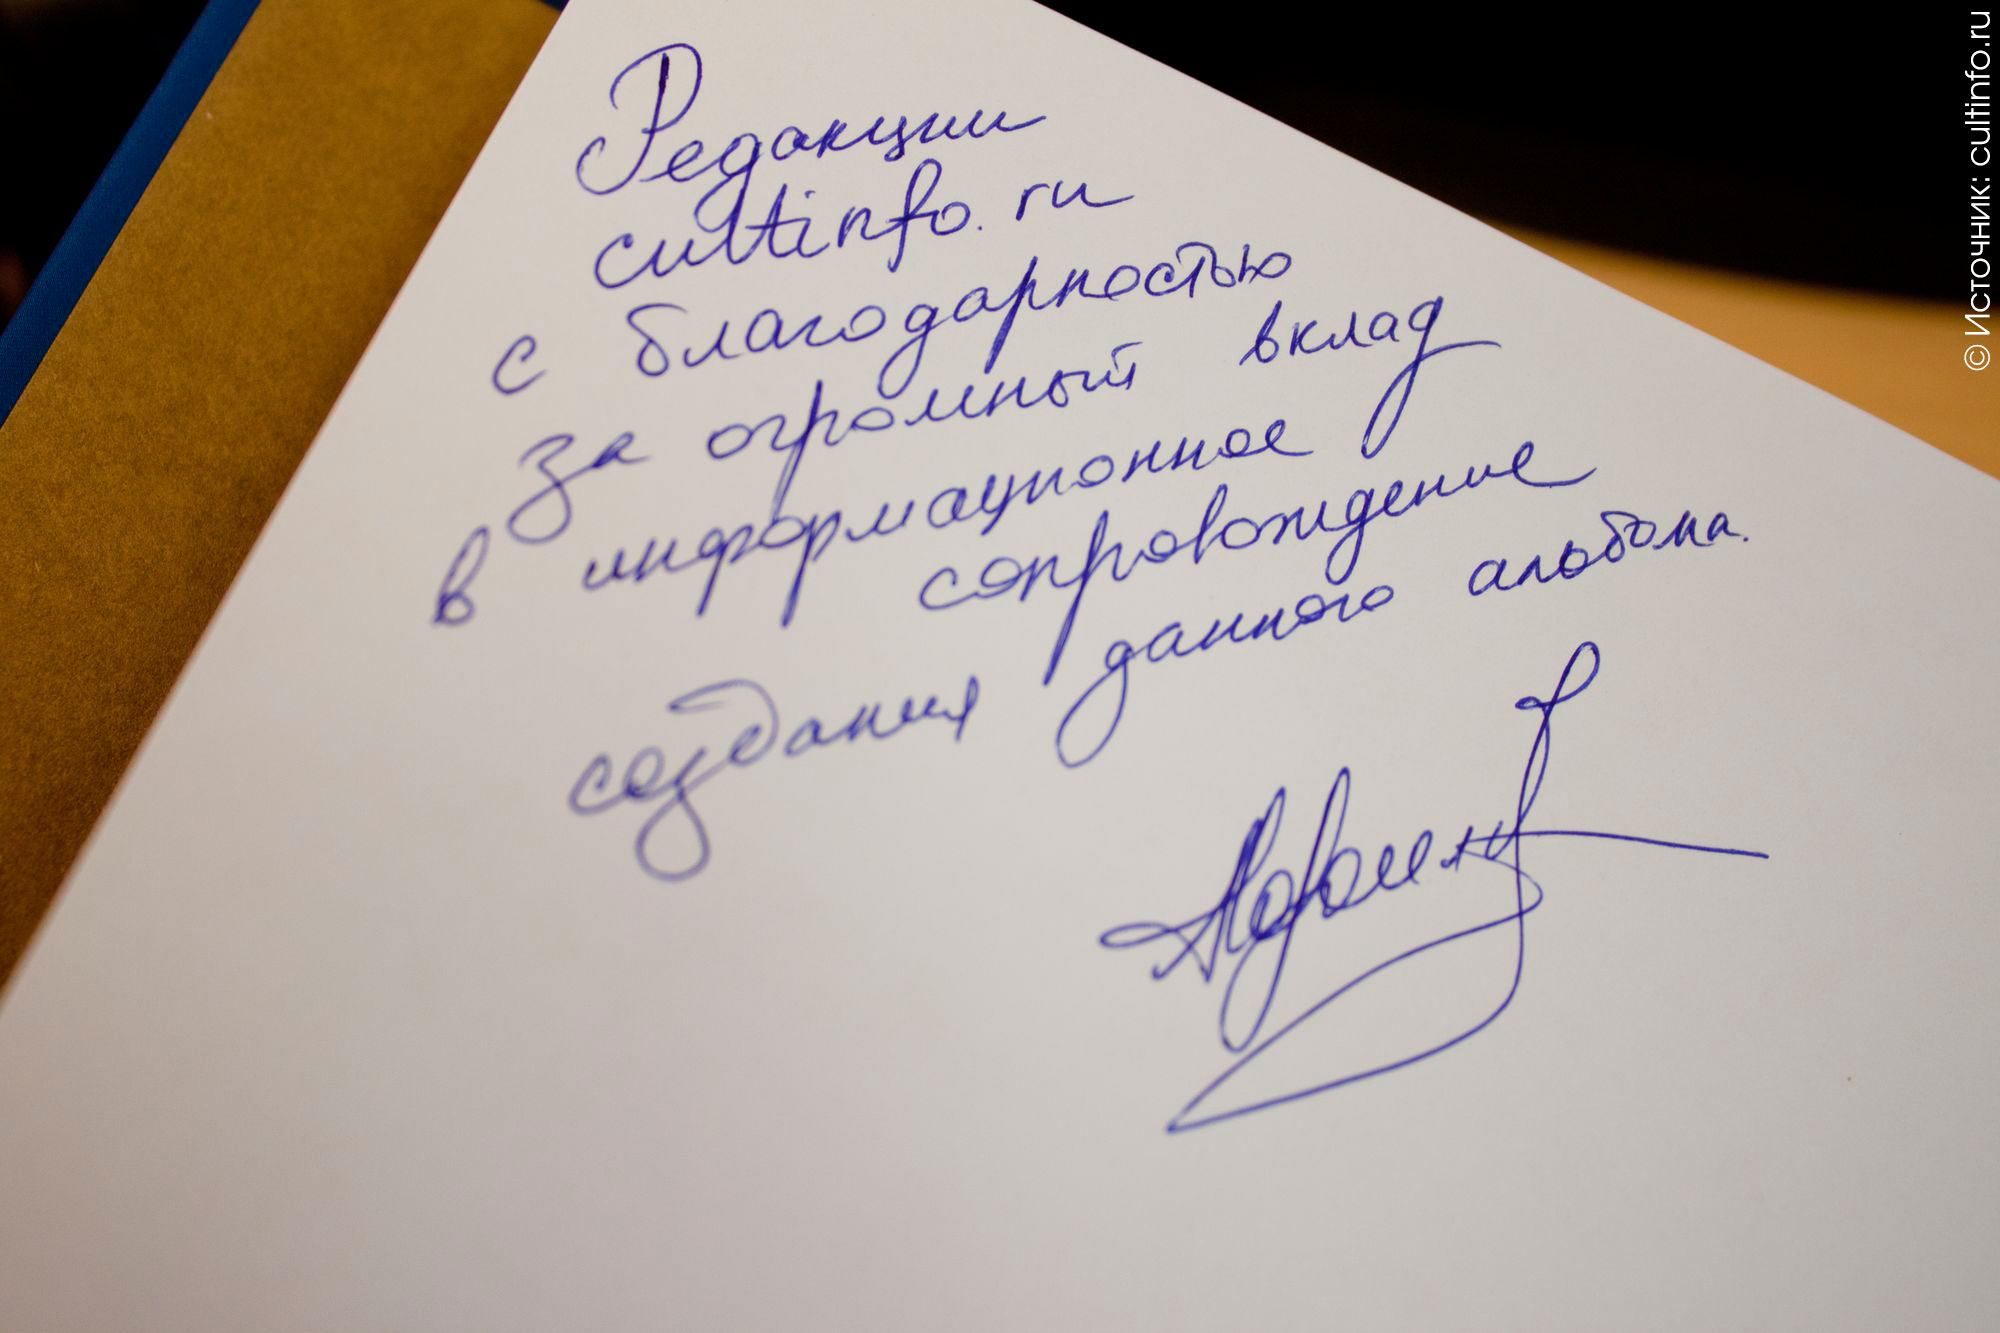 Редакции
cultinfo.ru
с благодарностью
за огромный вклад
в информационное
сопровождение
создания данного альбома.
© Источник: cultinfo.ru